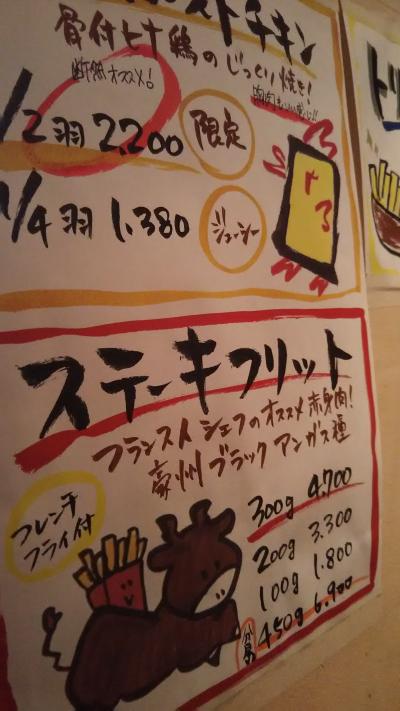 ストチキン
骨付ヒナ鶏のじっくり焼き!
断然オススメ!
1/2羽 2,200 限定
1/4羽 1,380 ジューシー
ステーキフリット
フランス人シェフのオススメ赤身肉!
豪州ブラックアンガス種
フレンチ
フライ付
300g 4,700
200g 3,300
100g 1,800
450g 6,900
ト